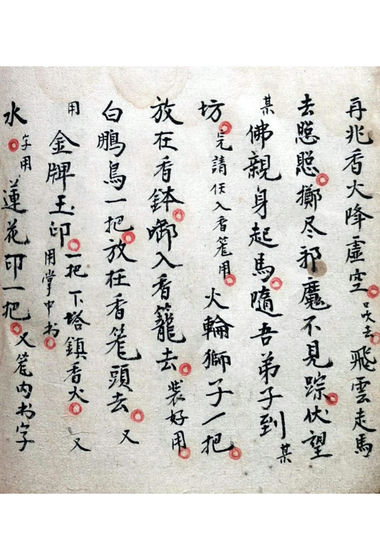 再兆香火降虚空吹去飛雲走馬
去愍愍擲尽邪魔不見踪伏望
某佛親身起馬隨吾弟子到某
坊完請任入香笼用火輪獅子一把
放在香鉢啣入香籠去装好用
白鵬鳥一把放在香笼頭去又
用金牌玉印一把下塔鎮香火又用掌中书
水字用蓮花印一把又笼内书字